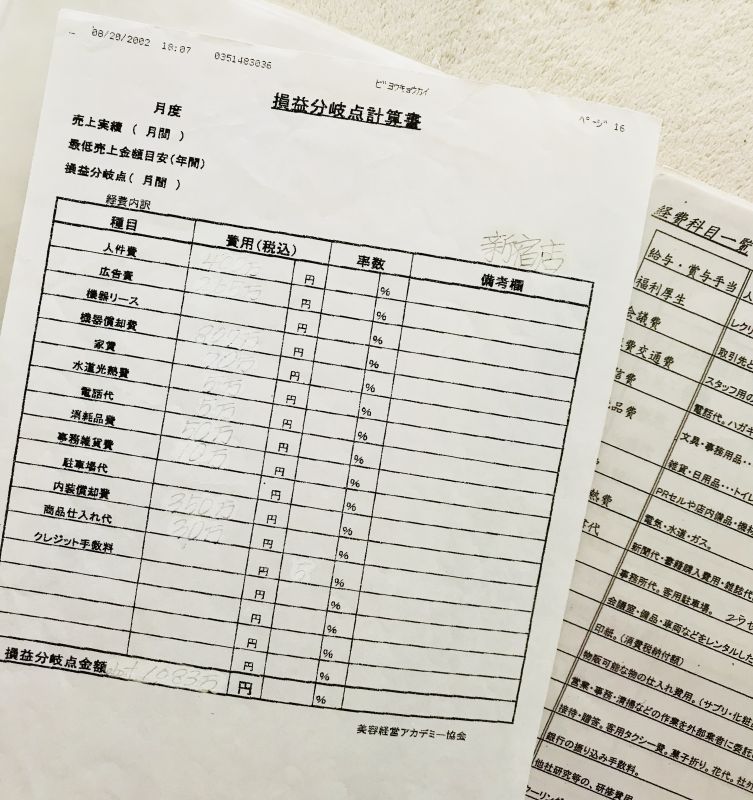 08/20/2002 18:07 0351483036 ビヨウキョウカイ ページ 16
損益分岐点計算書
月度
売上実績 ( 月間 )
最低売上金額目安(年間)
損益分岐点( 月間 )
経費内訳
新宿店
種目 費用(税込) 率数 備考欄
人件費 円 %
広告費 円 %
機器リース 円 %
機器償却費 円 %
家賃 円 %
水道光熱費 円 %
電話代 円 %
消耗品費 50万 円 %
事務雑貨費 10万 円 %
駐車場代 円 %
内装償却費 350万 円 %
商品仕入れ代 30万 円 %
クレジット手数料 円 5 %
円 %
円 %
円 %
損益分岐点金額 1083万 円 %
美容経営アカデミー協会
経費科目一覧
給与・賞与手当
福利厚生
会議費 レクリ
費交通費 取引先と
信費 スタッフ用の
品費 電話代。ハガキ
文具・事務用品・・
雑貨・日用品・・・トイ
PRセルや店内備品・機
熱費 電気・水道・ガス。
代 新聞代・書籍購入費用・雑誌代
事務所代。客用駐車場。
会議室・備品・車両などをレンタルした
印紙。(消費税納付額)
物販可能な物の仕入れ費用。(サプリ・化粧
営業・事務・清掃などの作業を外部業者に委託
接待・贈答。客用タクシー費。菓子折り。花代。社
銀行の振り込み手数料。
他社研究等の、研修費用